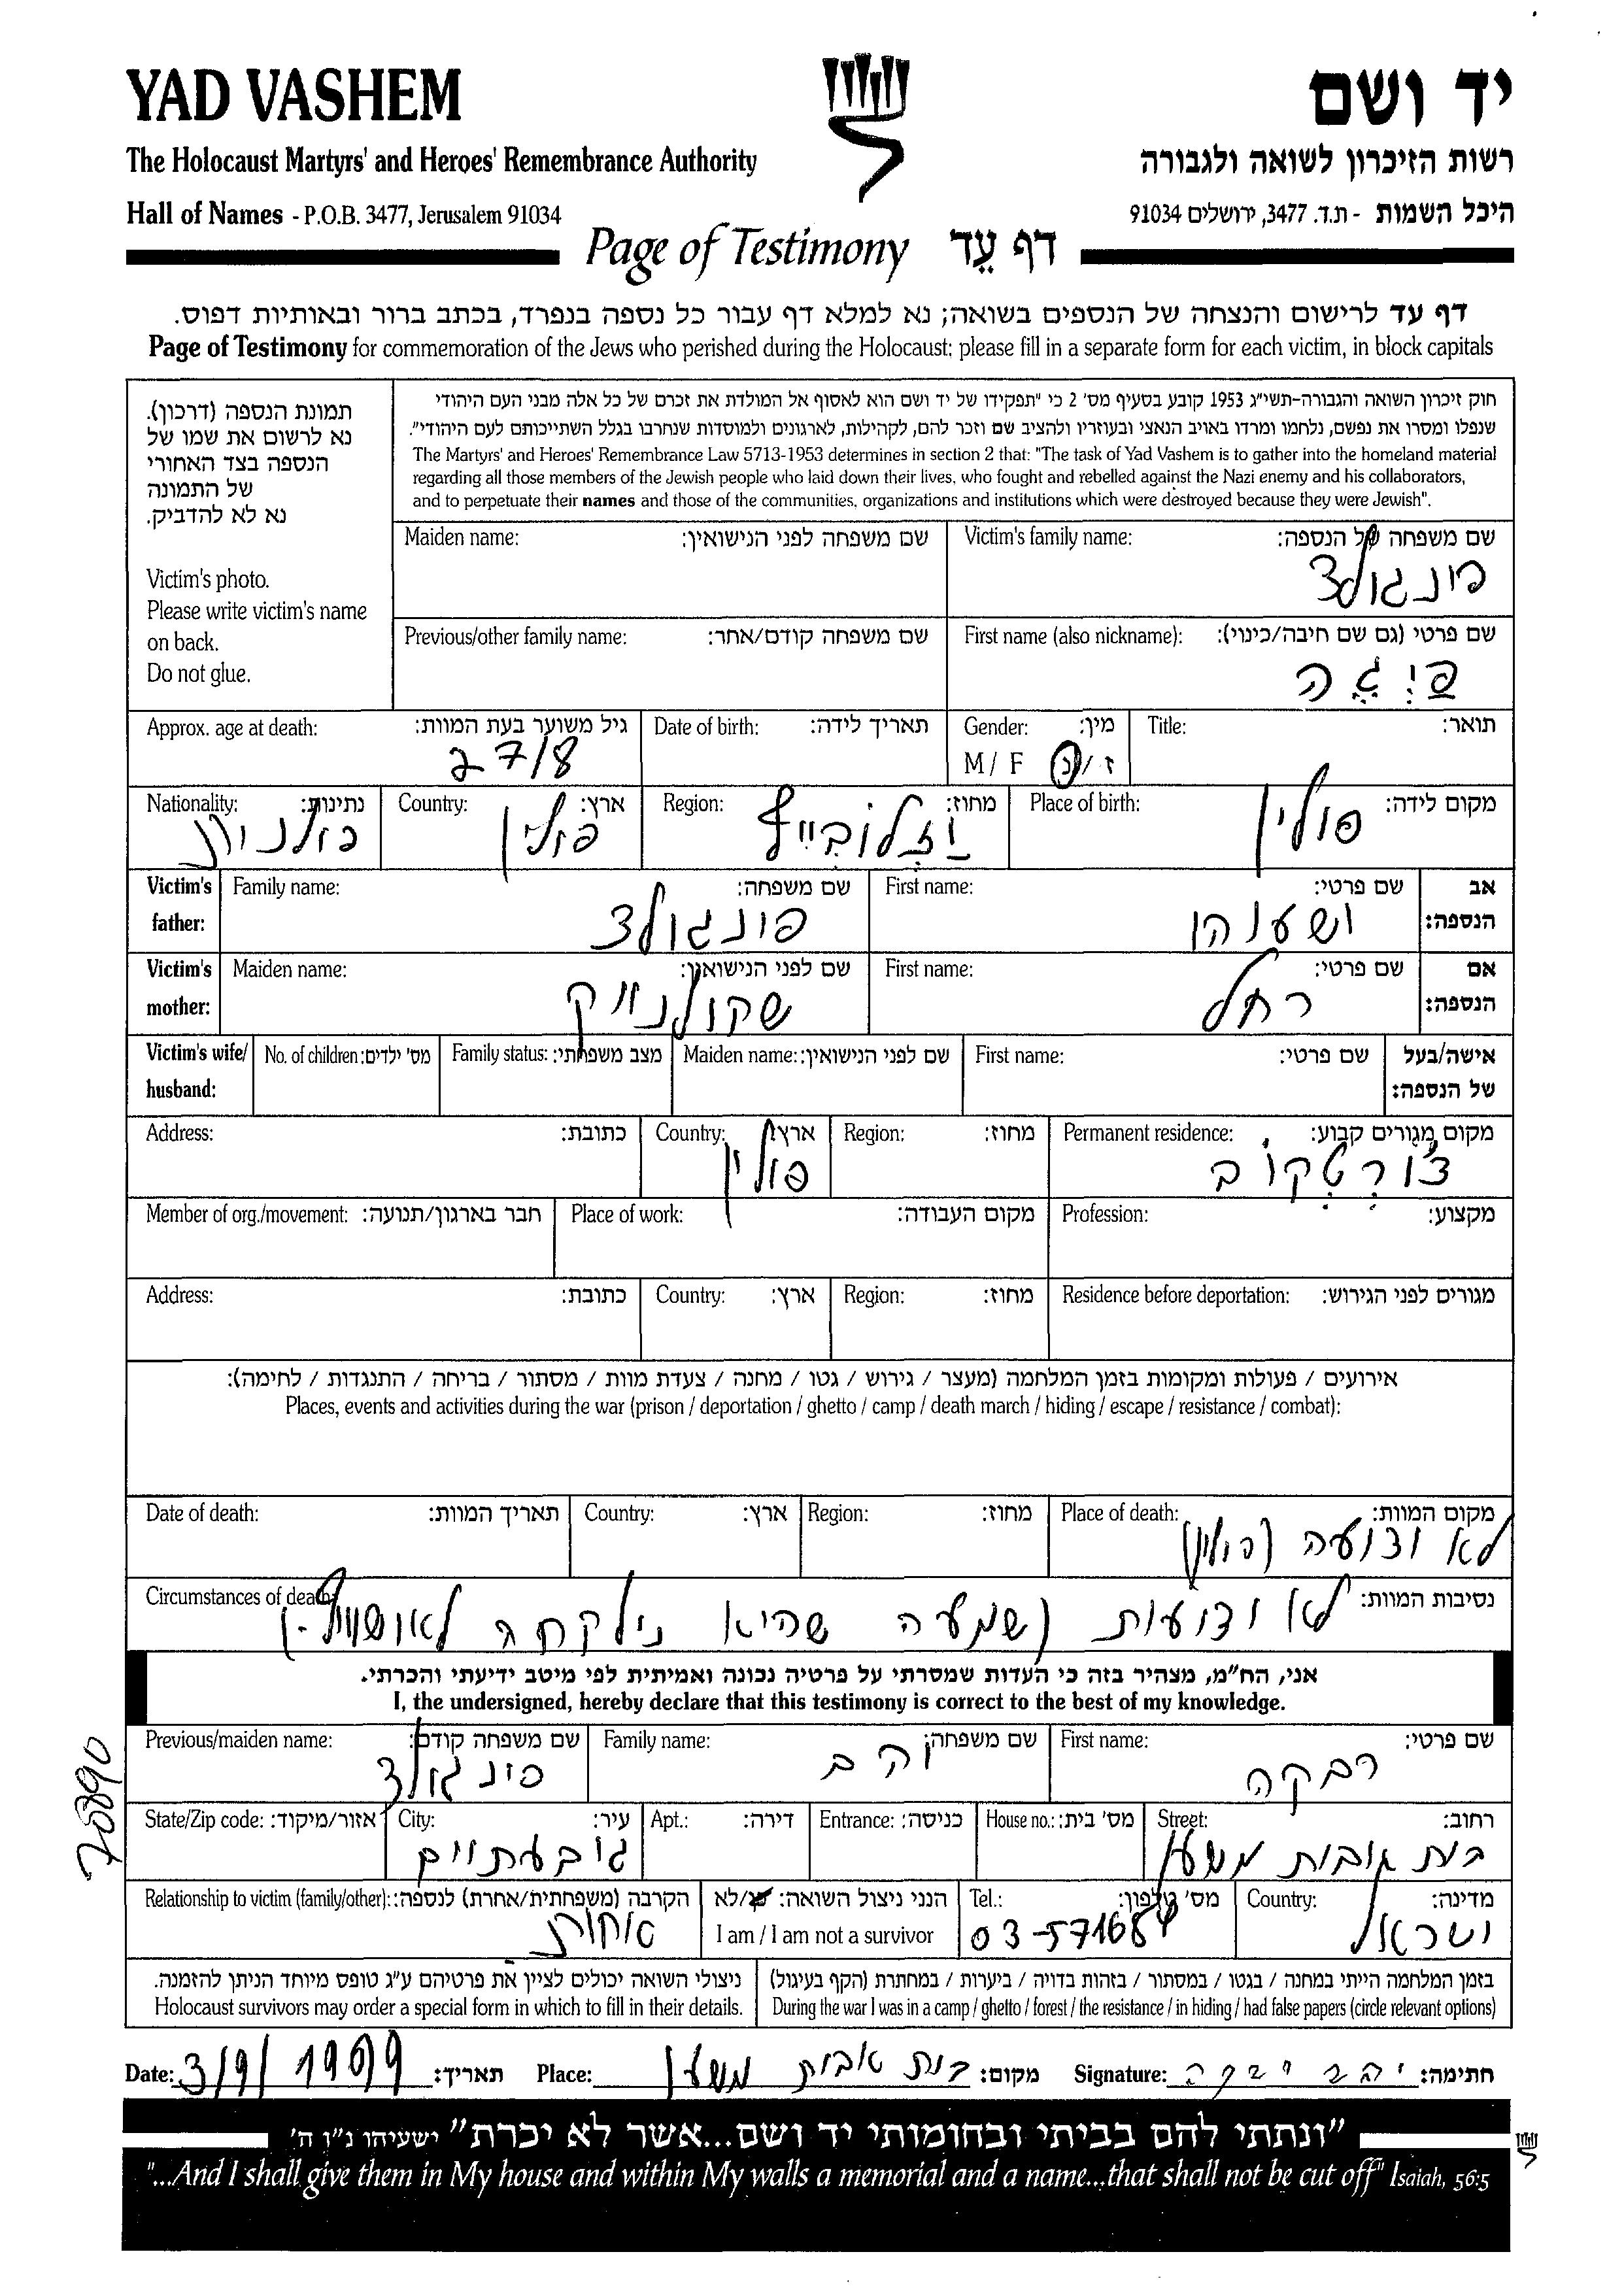 YAD VASHEM
יד ושם
The Holocaust Martyrs' and Heroes' Remembrance Authority
רשות הזיכרון לשואה ולגבורה
Hall of Names - P.O.B. 3477, Jerusalem 91034
היכל השמות - ת.ד. 3477, ירושלים 91034
Page of Testimony דף עֵד
דף עד לרישום והנצחה של הנספים בשואה; נא למלא דף עבור כל נספה בנפרד, בכתב ברור ובאותיות דפוס.
Page of Testimony for commemoration of the Jews who perished during the Holocaust; please fill in a separate form for each victim, in block capitals
תמונת הנספה (דרכון).
נא לרשום את שמו של
הנספה בצד האחורי
של התמונה
נא לא להדביק.
Victim's photo.
Please write victim's name
on back.
Do not glue.
חוק זיכרון השואה והגבורה-תשי"ג 1953 קובע בסעיף מס' 2 כי "תפקידו של יד ושם הוא לאסוף אל המולדת את זכרם של כל אלה מבני העם היהודי
שנפלו ומסרו את נפשם, נלחמו ומרדו באויב הנאצי ובעוזריו ולהציב שם וזכר להם, לקהילות, לארגונים ולמוסדות שנחרבו בגלל השתייכותם לעם היהודי".
The Martyrs' and Heroes' Remembrance Law 5713-1953 determines in section 2 that: "The task of Yad Vashem is to gather into the homeland material
regarding all those members of the Jewish people who laid down their lives, who fought and rebelled against the Nazi enemy and his collaborators,
and to perpetuate their names and those of the communities, organizations and institutions which were destroyed because they were Jewish".
Maiden name: שם משפחה לפני הנישואין:
Victim's family name: שם משפחה של הנספה:
פינגולד
Previous/other family name: שם משפחה קודם/אחר:
First name (also nickname): שם פרטי (גם שם חיבה/כינוי):
פייגה
Approx. age at death: גיל משוער בעת המוות:
27/8
Date of birth: תאריך לידה:
Gender: מין:
M / F ז / נ
Title: תואר:
Nationality: נתינות:
פולנית
Country: ארץ:
פולין
Region: מחוז:
Place of birth: מקום לידה:
פולין
Victim's father: Family name: שם משפחה:
פינגולד
First name: שם פרטי:
ישעיהו
אב הנספה:
Victim's mother: Maiden name: שם לפני הנישואין:
שקולניק
First name: שם פרטי:
רחל
אם הנספה:
Victim's wife/ husband: No. of children: מס' ילדים: Family status: מצב משפחתי: Maiden name: שם לפני הנישואין: First name: שם פרטי: אישה/בעל של הנספה:
Address: כתובת:
Country: ארץ:
פולין
Region: מחוז:
Permanent residence: מקום מגורים קבוע:
צ'ורטקוב
Member of org./movement: חבר בארגון/תנועה: Place of work: מקום העבודה: Profession: מקצוע:
Address: כתובת: Country: ארץ: Region: מחוז: Residence before deportation: מגורים לפני הגירוש:
אירועים / פעולות ומקומות בזמן המלחמה (מעצר / גירוש / גטו / מחנה / צעדת מוות / מסתור / בריחה / התנגדות / לחימה):
Places, events and activities during the war (prison / deportation / ghetto / camp / death march / hiding / escape / resistance / combat):
Date of death: תאריך המוות: Country: ארץ: Region: מחוז: Place of death: מקום המוות:
לא ידועה (פולין)
Circumstances of death: נסיבות המוות:
לא ידועות (שמעה שהיא נילקחה לאושוויץ.)
אני, הח"מ, מצהיר בזה כי העדות שמסרתי על פרטיה נכונה ואמיתית לפי מיטב ידיעתי והכרתי.
I, the undersigned, hereby declare that this testimony is correct to the best of my knowledge.
Previous/maiden name: שם משפחה קודם:
פינגולד
Family name: שם משפחה:
יהב
First name: שם פרטי:
רבקה
State/Zip code: אזור/מיקוד:
City: עיר:
גבעתיים
Apt.: דירה: Entrance: כניסה: House no.: מס' בית:
Street: רחוב:
בית אבות משען
Relationship to victim (family/other): הקרבה (משפחתית/אחרת) לנספה:
אחות
הנני ניצול השואה: כן/לא
I am / I am not a survivor
Tel.: מס' טלפון:
03-571684
Country: מדינה:
ישראל
ניצולי השואה יכולים לציין את פרטיהם ע"ג טופס מיוחד הניתן להזמנה.
Holocaust survivors may order a special form in which to fill in their details.
בזמן המלחמה הייתי במחנה / בגטו / במסתור / בזהות בדויה / ביערות / במחתרת (הקף בעיגול)
During the war I was in a camp / ghetto / forest / the resistance / in hiding / had false papers (circle relevant options)
Date: 3/9/1999 תאריך: Place: בית אבות משען מקום: Signature: יהב רבקה חתימה:
"ונתתי להם בביתי ובחומותי יד ושם...אשר לא יכרת" ישעיהו נ"ו ה'
"...And I shall give them in My house and within My walls a memorial and a name...that shall not be cut off" Isaiah, 56:5